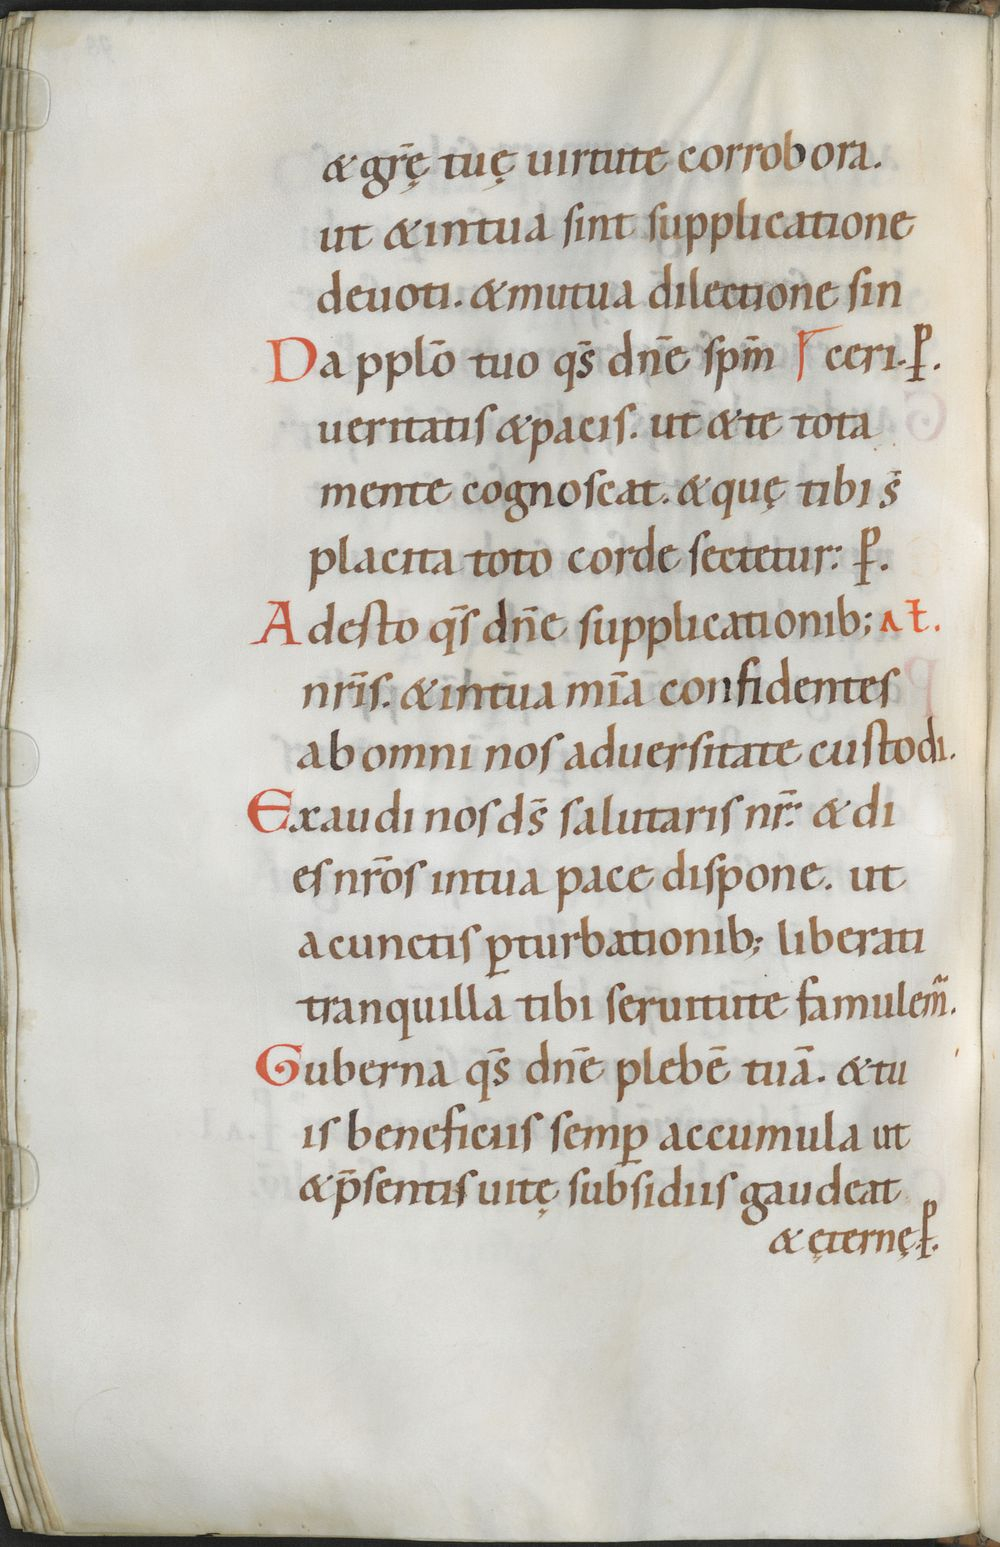 & gr̄ę tuę uirtute corrobora.
ut & in tua sint supplicatione
deuoti. & mutua dilectione sin
Da pplō tuo qs̄ dn̄e sp̄m ceri. ꝑ.
ueritatis & pacis. ut & te tota
mente cognoscat. & quę tibi s̄
placita toto corde sectetur: ꝑ.
Adesto qs̄ dn̄e supplicationib; aƚ.
nr̄is. & in tua mīa confidentes
ab omni nos aduersitate custodi.
Exaudi nos ds̄ salutaris nr̄: & di
es nr̄os in tua pace dispone. ut
a cunctis ꝑturbationib; liberati
tranquilla tibi seruitute famulem̄.
Guberna qs̄ dn̄e plebē tuā. & tu
is beneficiis semꝑ accumula ut
& p̄sentis uitę subsidiis gaudeat
& ęternę. ꝑ.